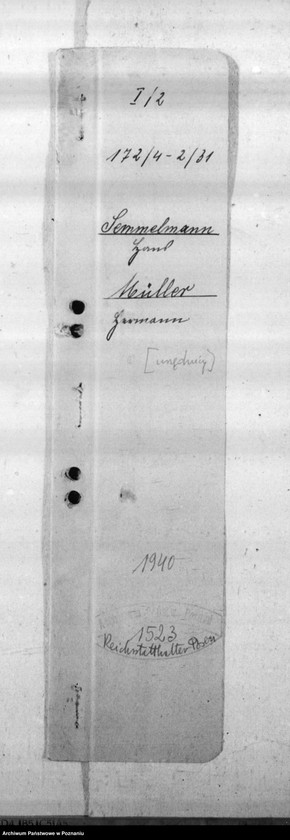 I/2
172/4-2/31
Semmelmann
Hans
Müller
Hermann
1940
1523
Reichsstatthalter Posen
Archiwum Państwowe w Poznaniu